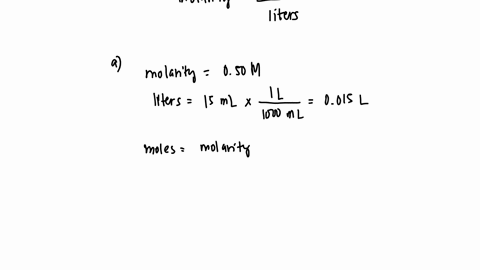 liters
a) molarity = 0.50 M
liters = 15 mL × 1 L / 1000 mL = 0.015 L
moles = molarity